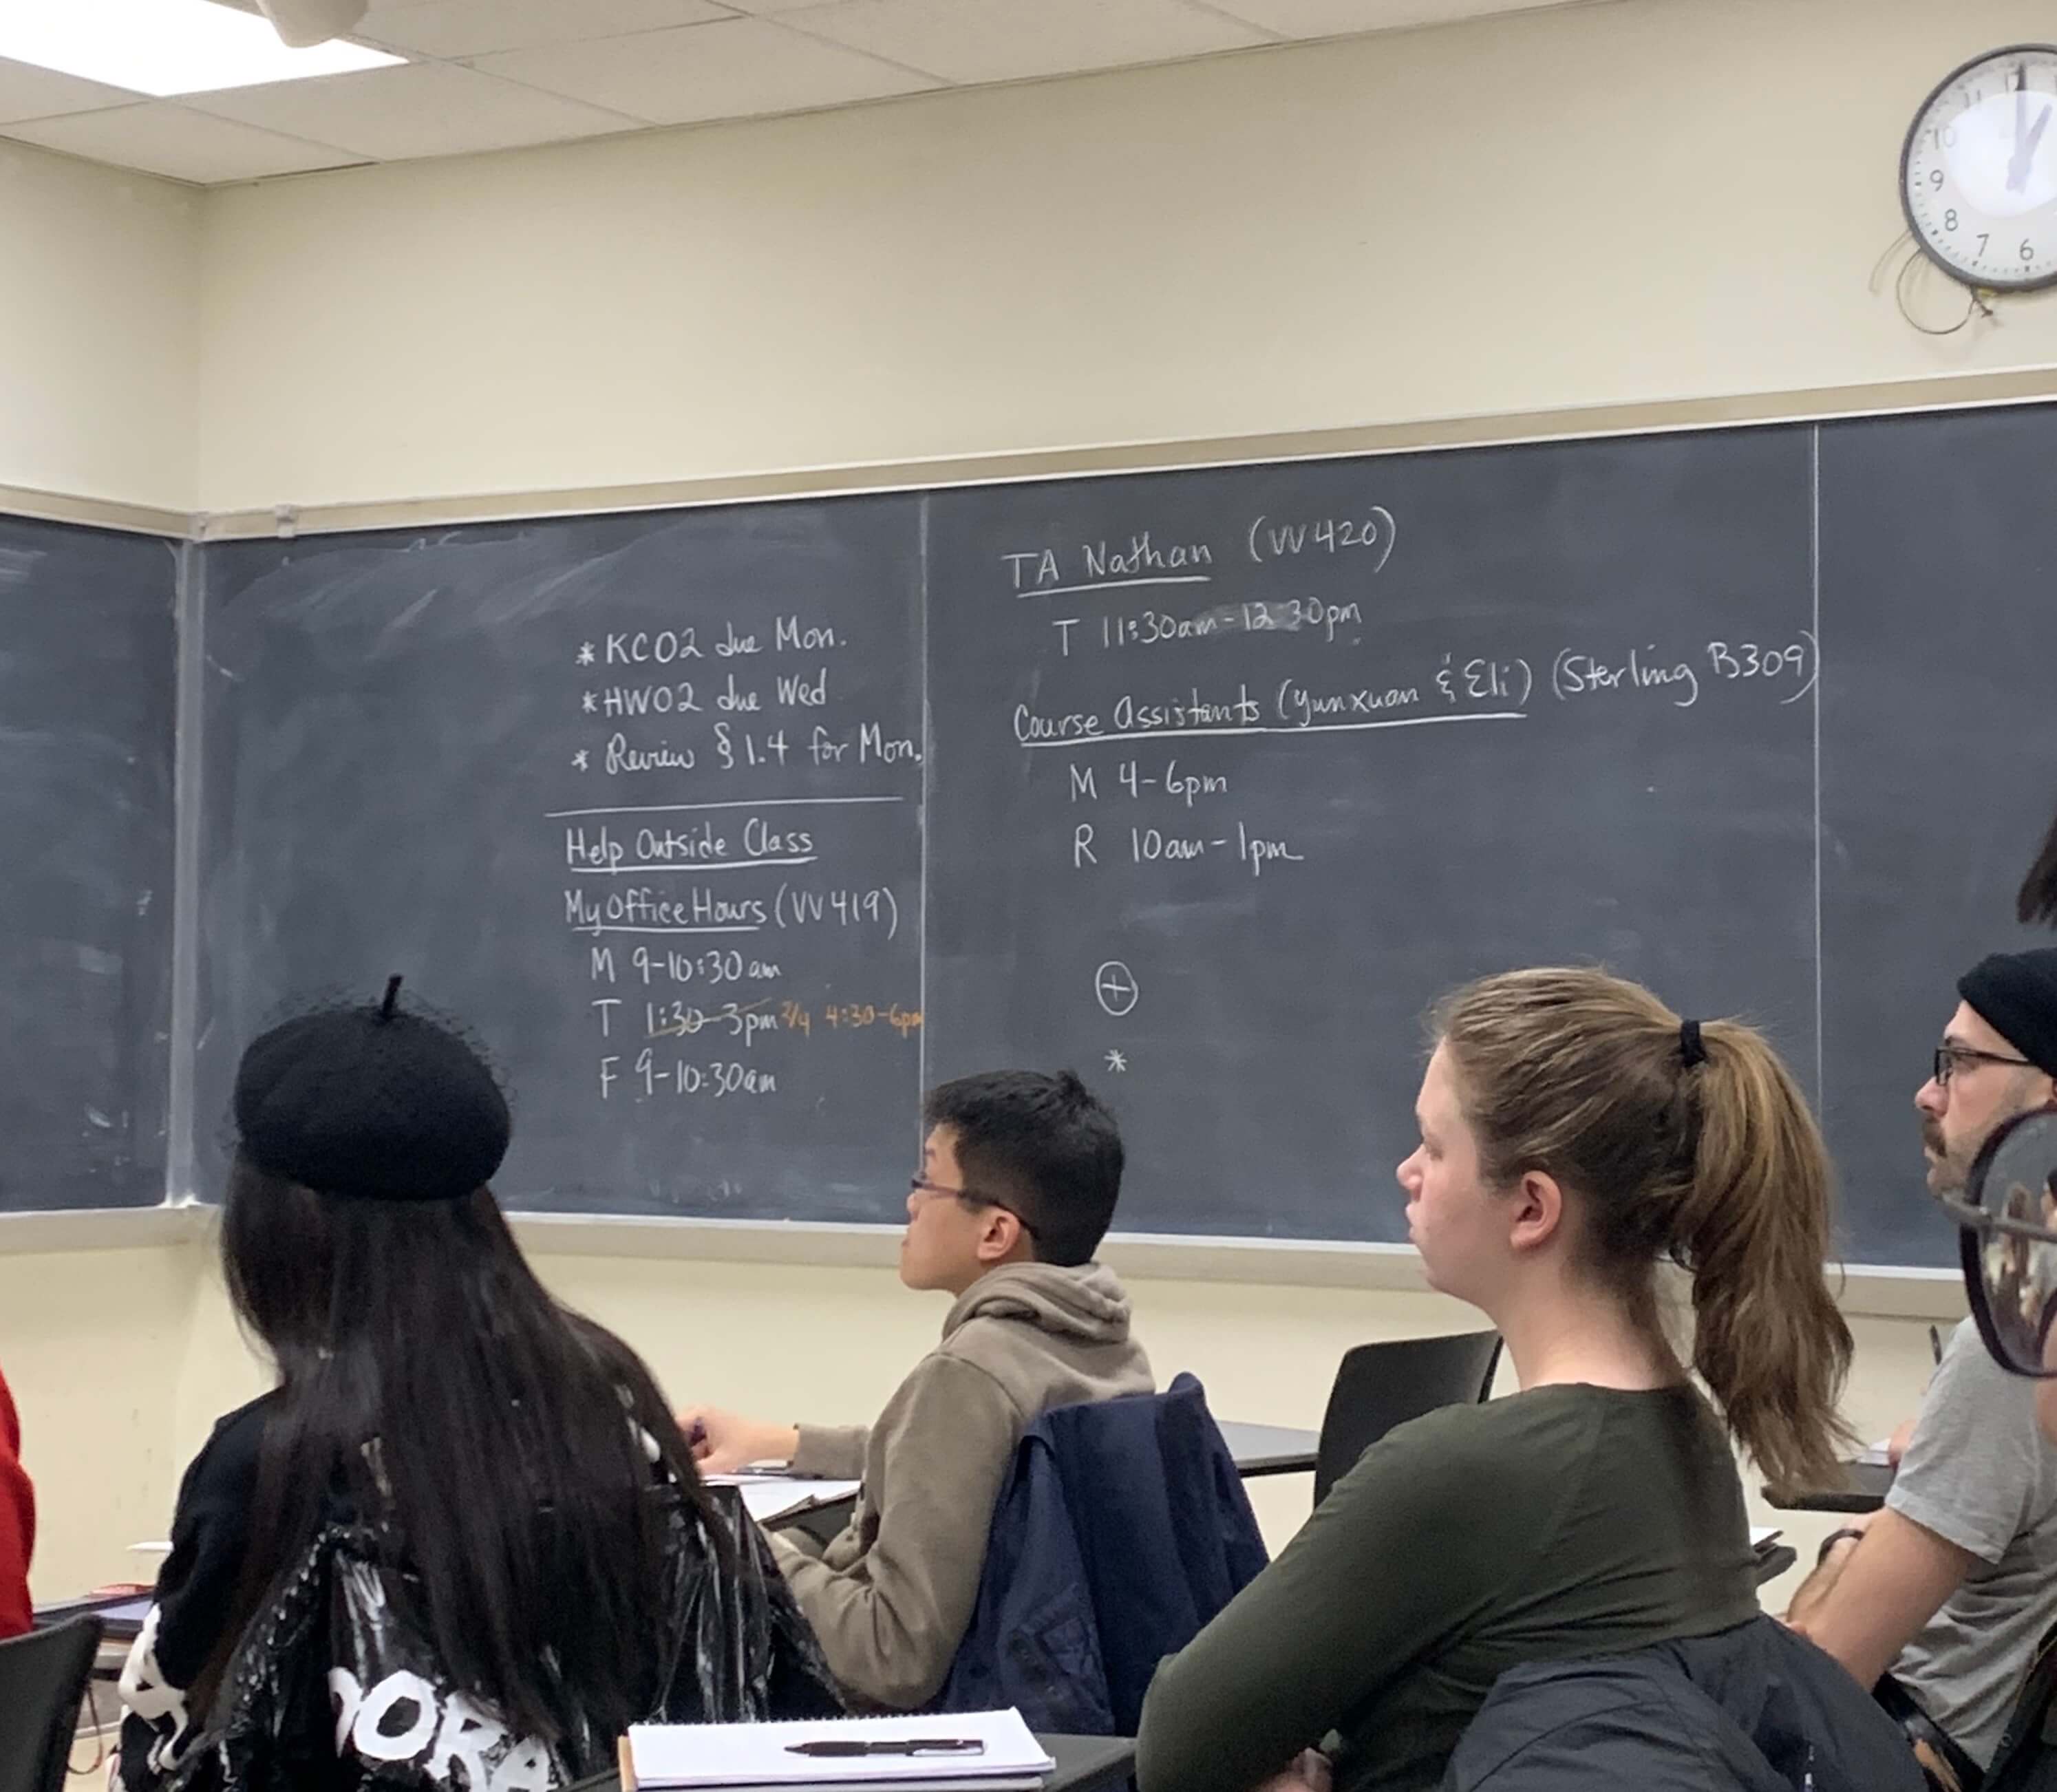 * KC02 due Mon.
* HW02 due Wed
* Review § 1.4 for Mon.
Help Outside Class
My Office Hours (VV 419)
M 9-10:30 am
T 1:30-3pm 2/4 4:30-6pm
F 9-10:30am
TA Nathan (VV 420)
T 11:30am-12:30pm
Course Assistants (Yunxuan & Eli) (Sterling B309)
M 4-6pm
R 10am-1pm
⊕
*
11 12
10
9
8
7 6